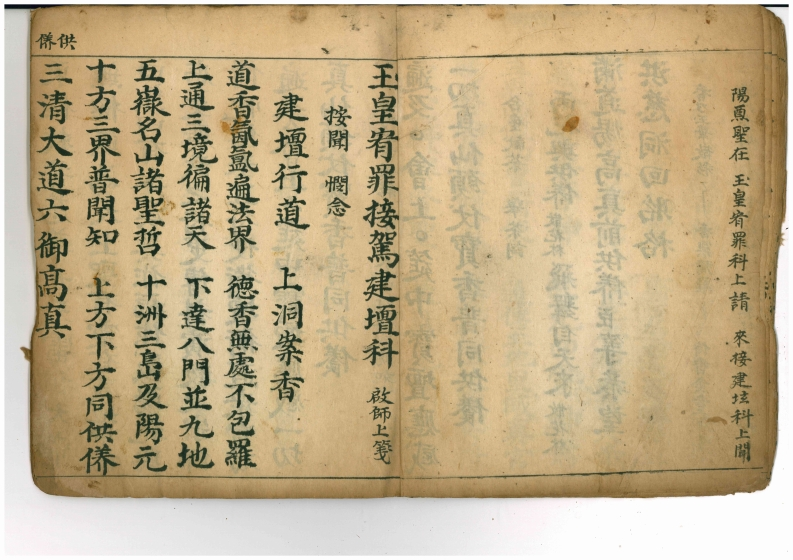 陽聖在 玉皇宥罪科上請 來接建坛科上聞
玉皇宥罪接駕建壇科 啟師上箋
按聞 憫念
建壇行道 上洞案香
道香氤氳遍法界 德香無處不包羅
上通三境徧諸天 下達八門並九地
五嶽名山諸聖哲 十洲三島及陽元
十方三界普聞知 上方下方同供養
三清大道六御高真
供養